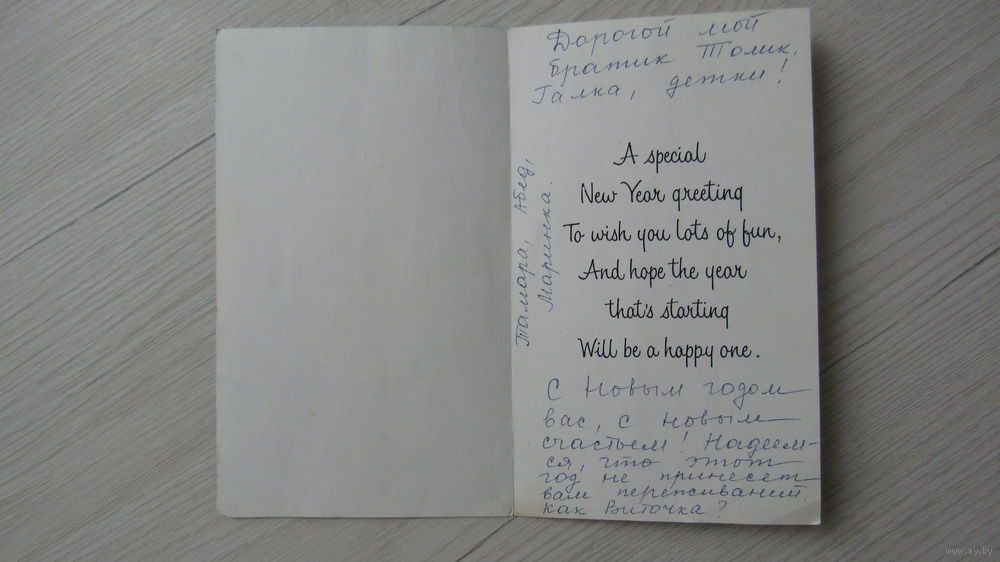 Дорогой мой
братик Толик,
Галка, детки!
A special
New Year greeting
To wish you lots of fun,
And hope the year
that's starting
Will be a happy one.
С Новым годом
вас, с новым
счастьем! Надеем-
ся, что этот
год не принесет
вам переживаний.
Как Виточка?
Тамара, Абед,
Маринка.
www.ay.by